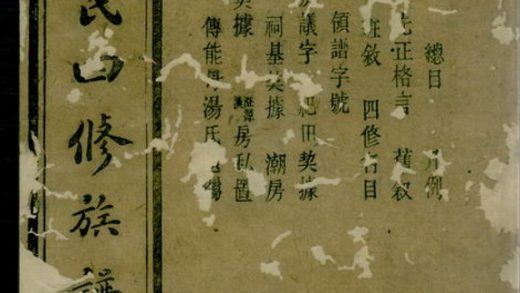 總目 凡例
先正格言 舊敘
班敘 四修名目
領譜字號
議字 祀田契據
祠基契據 潮房
契據 房私置
傳能 湯氏
氏四修族譜